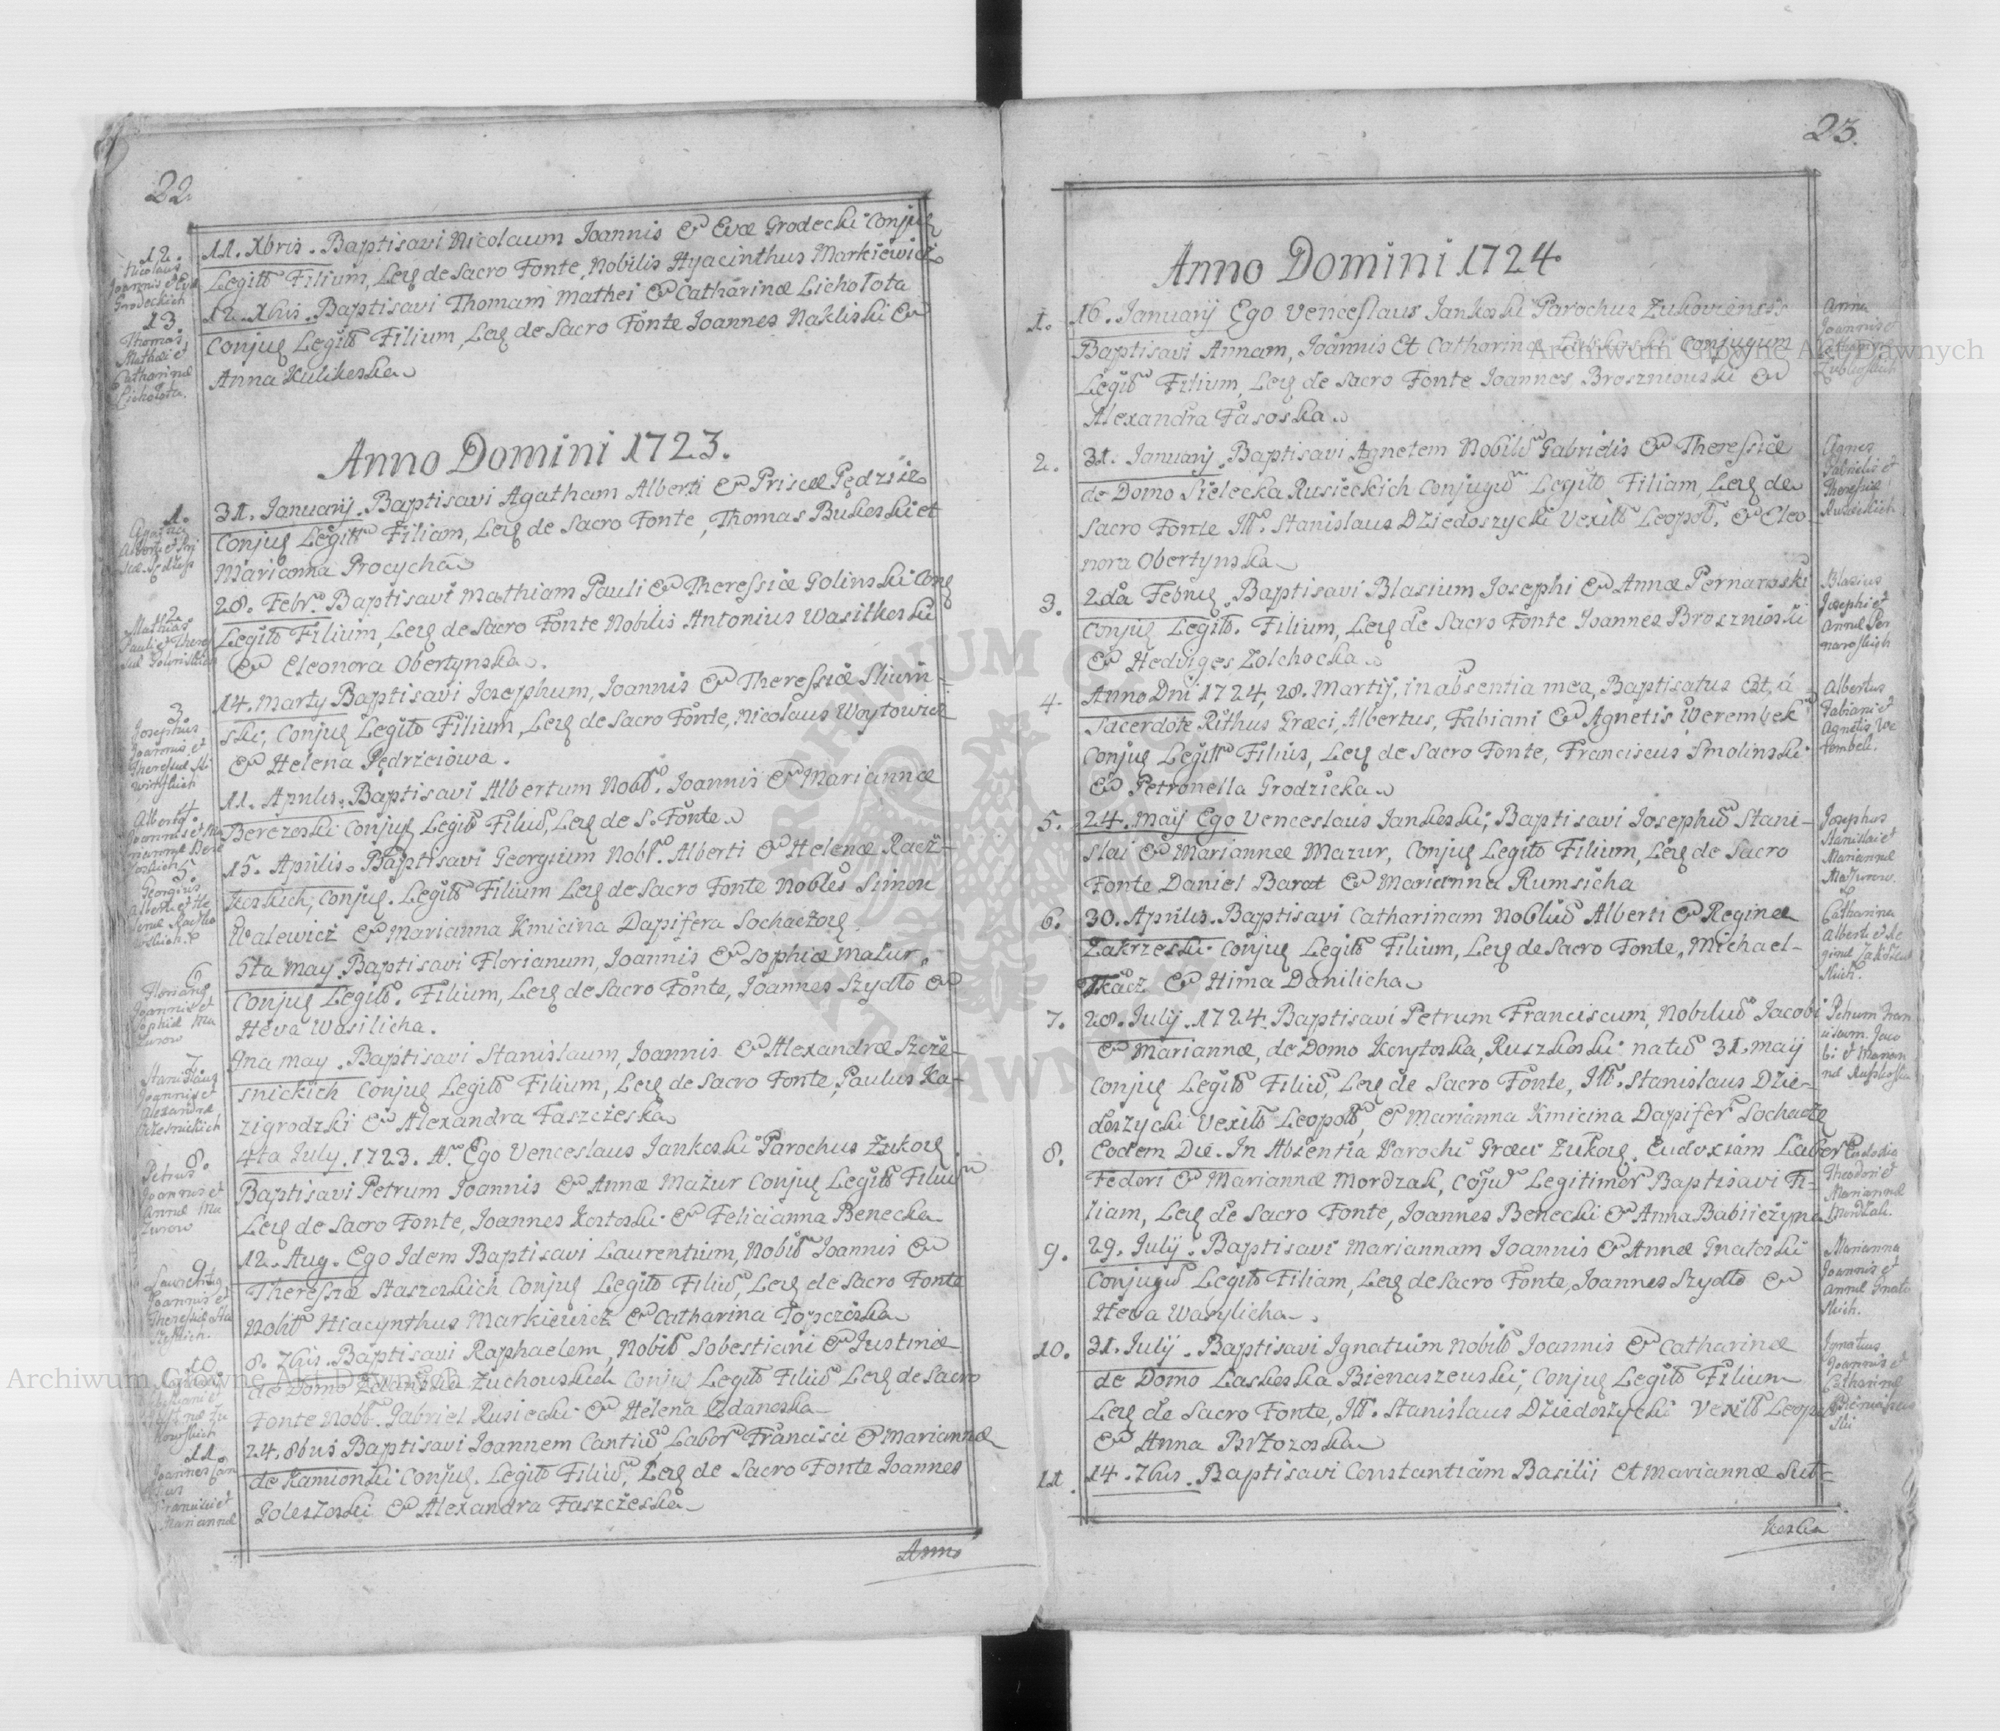 22.
12.
Nicolaus
Joannis et Evæ
Grodeckich
13.
Thomas
Mathæi et
Catharinæ
Licholota.
11. Xbris. Baptisavi Nicolaum Joannis & Evæ Grodecki Conjug
Legitt Filium, Levg de Sacro Fonte, Nobilis Hyacinthus Markiewicz
12. Xbris. Baptisavi Thomam Mathei & Catharinæ Licholota
Conjug Legitt Filium, Levg de Sacro Fonte Joannes Nakliski &
Anna Kulikoska
Anno Domini 1723.
1.
Agathas
Alberti et Pri
scæ
31. Januarij. Baptisavi Agatham Alberti & Priscæ Pędziz
Conjug Legitt Filiam, Levg de Sacro Fonte, Thomas Bukoski et
Marianna Procycha
2.
Mathias
Pauli et There
siæ Golinskich
28. Febr. Baptisavi Mathiam Pauli & Theressiæ Golinski Cong
Legitt Filium, Levg de Sacro Fonte Nobilis Antonius Wasilkoski
& Eleonora Obertynska.
3
Josephus
Joannis et
Theresiæ Sli
winskich
14. Marty Baptisavi Josephum, Joannis & Theressiæ Sliwin-
ski, Conjug Legitt Filium, Levg de Sacro Fonte, Nicolaus Woytowicz
& Helena Pędrzciowa.
4.
Albertus
Joannis et Ma
riannæ Bere
zoskich
11. Aprilis. Baptisavi Albertum Nobb. Joannis & Mariannæ
Berezoski Conjug Legitt Filiu, Levg de S. Fonte.
5.
Georgius
Alberti et He
lenæ Raczko
woskich.
15. Aprilis. Baptisavi Georgium Nobl. Alberti & Helenæ Racz-
koskich, Conjug. Legitt Filium Levg de Sacro Fonte Nobles Simon
Walewicz & Marianna Kmicina Dapifera Sochaczovg
6
Florianq
Joannis et
Sophiæ Ma
zurow
5ta May. Baptisavi Florianum, Joannis & Sophiæ Mazur.
Conjug Legitt. Filium, Levg de Sacro Fonte, Joannes Szydło &
Heva Wasilicha.
7
Stanislaus
Joannis et
Alexandræ
Szczesnickich
9na May. Baptisavi Stanislaum, Joannis & Alexandræ Szcze-
snickich Conjug Legitt Filium, Levg de Sacro Fonte, Paulus Ka-
zigrodzki & Alexandra Faszczeska
8.
Petrus
Joannis et
Annæ Ma
zurow
4ta July. 1723. A. Ego Venceslaus Jankoski Parochus Zukovg
Baptisavi Petrum Joannis & Annæ Mazur Conjug Legitt Filium
Levg de Sacro Fonte, Joannes Kostoski & Felicianna Benecka
9
Laurentiq
Joannis et
Theresiæ Sta
szeskich.
12. Aug. Ego Idem Baptisavi Laurentium, Nobit Joannis &
Theressiæ Staszeskich Conjug Legitt Filiu, Levg de Sacro Fonte
Nobit Hiacynthus Markiewicz & Catharina Topczeska
10
8. 7bris. Baptisavi Raphaelem, Nobit Sobestiani & Justinæ
de Domo Zuchouskich Conju Legitt Filiu Levg de Sacro
Fonte Nobb. Gabriel Rusiecki & Helena Zdanoska
11.
Joannes Can
tius
Francisci et
Mariannæ
24. 8bus Baptisavi Joannem Cantiu Labor Francisci & Mariannæ
de Kamionki Conjug. Legitt Filiu, Levg de Sacro Fonte Joannes
Goleszoski & Alexandra Faszczeska
Anno
23.
Anno Domini 1724.
1.
16. Januarij Ego Venceslaus Jankoski Parochus Zukoviensis
Baptisavi Annam, Joannis Et Catharinæ Lubkoski Conjugum
Legitt Filium, Levg de Sacro Fonte Joannes Broszniouski &
Alexandra Fasoska
Anna
Joannis et
2.
31. Januarij. Baptisavi Agnetem Nobiliu Gabrielis & Theressiæ
de Domo Sielecka Rusieckich Conjugu Legitt Filiam, Levg de
Sacro Fonte Ill. Stanislaus Dziedoszycki Vexill Leopol. & Eleo-
nora Obertynska
Agnes
Gabrielis et
Theressiæ
Rusieckich
3.
2da Februg. Baptisavi Blasium Josephi & Annæ Pernaroski
Conjug Legitt. Filium, Levg de Sacro Fonte Joannes Broszniöski
& Hedviges Zolchocka
Blasius
Josephi et
Annæ Per
naroskich
4.
Anno Dni 1724, 28. Martij, in absentia mea, Baptisatus Est, á
Sacerdote Rithus Græci, Albertus, Fabiani & Agnetis Werembek
Conjug Legitt Filius, Levg de Sacro Fonte, Franciscus Smolinski
& Petronella Grodzicka
Albertus
Fabiani et
Agnetis We
rembek.
5.
24. May Ego Venceslaus Jankoski, Baptisavi Josephu Stani-
slai & Mariannæ Mazur, Conjug Legitt Filium, Levg de Sacro
Fonte Daniel Barat & Marianna Rumsicha
Josephus
Stanislai et
Mariannæ
Mazurow.
6.
30. Aprilis. Baptisavi Catharinam Nobiliu Alberti & Reginæ
Zakrzeski Conjug Legitt Filium, Levg de Sacro Fonte, Michael-
Tkacz & Hima Danilicha
6
Catharina
Alberti et Re
ginæ Zakrzew
skich.
7.
28. July. 1724. Baptisavi Petrum Franciscum, Nobiliu Jacobi
& Mariannæ, de Domo Korytoska, Ruszkoski natu 31. May
Conjug Legitt Filiu, Levg de Sacro Fonte, Ill. Stanislaus Dzie-
doszycki Vexill Leopolt, & Marianna Kmicina Dapifer Sochacze
Petrum Fran
cisum. Jaco
bi et Marian
næ Ruszkoskich
8.
Eodem Die. In Absentia Parochi Græci Zukovg. Eudoxiam Labor
Fedori & Mariannæ Mordzak, Coju Legitimor Baptisavi Fi-
liam, Levg de Sacro Fonte, Joannes Benecki & Anna Babiiczyna
Theodori et
Mariannæ
Mordzak.
9.
29. July. Baptisavi Mariannam Joannis & Annæ Gnatoski
Conjugu Legitt Filiam, Levg de Sacro Fonte, Joannes Szydło &
Heva Wasylicha.
Marianna
Joannis et
Annæ Gnato
skich.
10.
31. July. Baptisavi Ignatium Nobilt Joannis & Catharinæ
de Domo Laskoska Bienaszeuski, Conjug Legitt Filium
Levg de Sacro Fonte, Ill. Stanislaus Dziedoszycki Vexill Leopol
& Anna Brzozoska
Ignatius
Joannis et
Catharinæ
11.
14. 7bus. Baptisavi Constantiam Basilii Et Mariannæ Sut-
koska
Archiwum Główne Akt Dawnych
Archiwum Główne Akt Dawnych